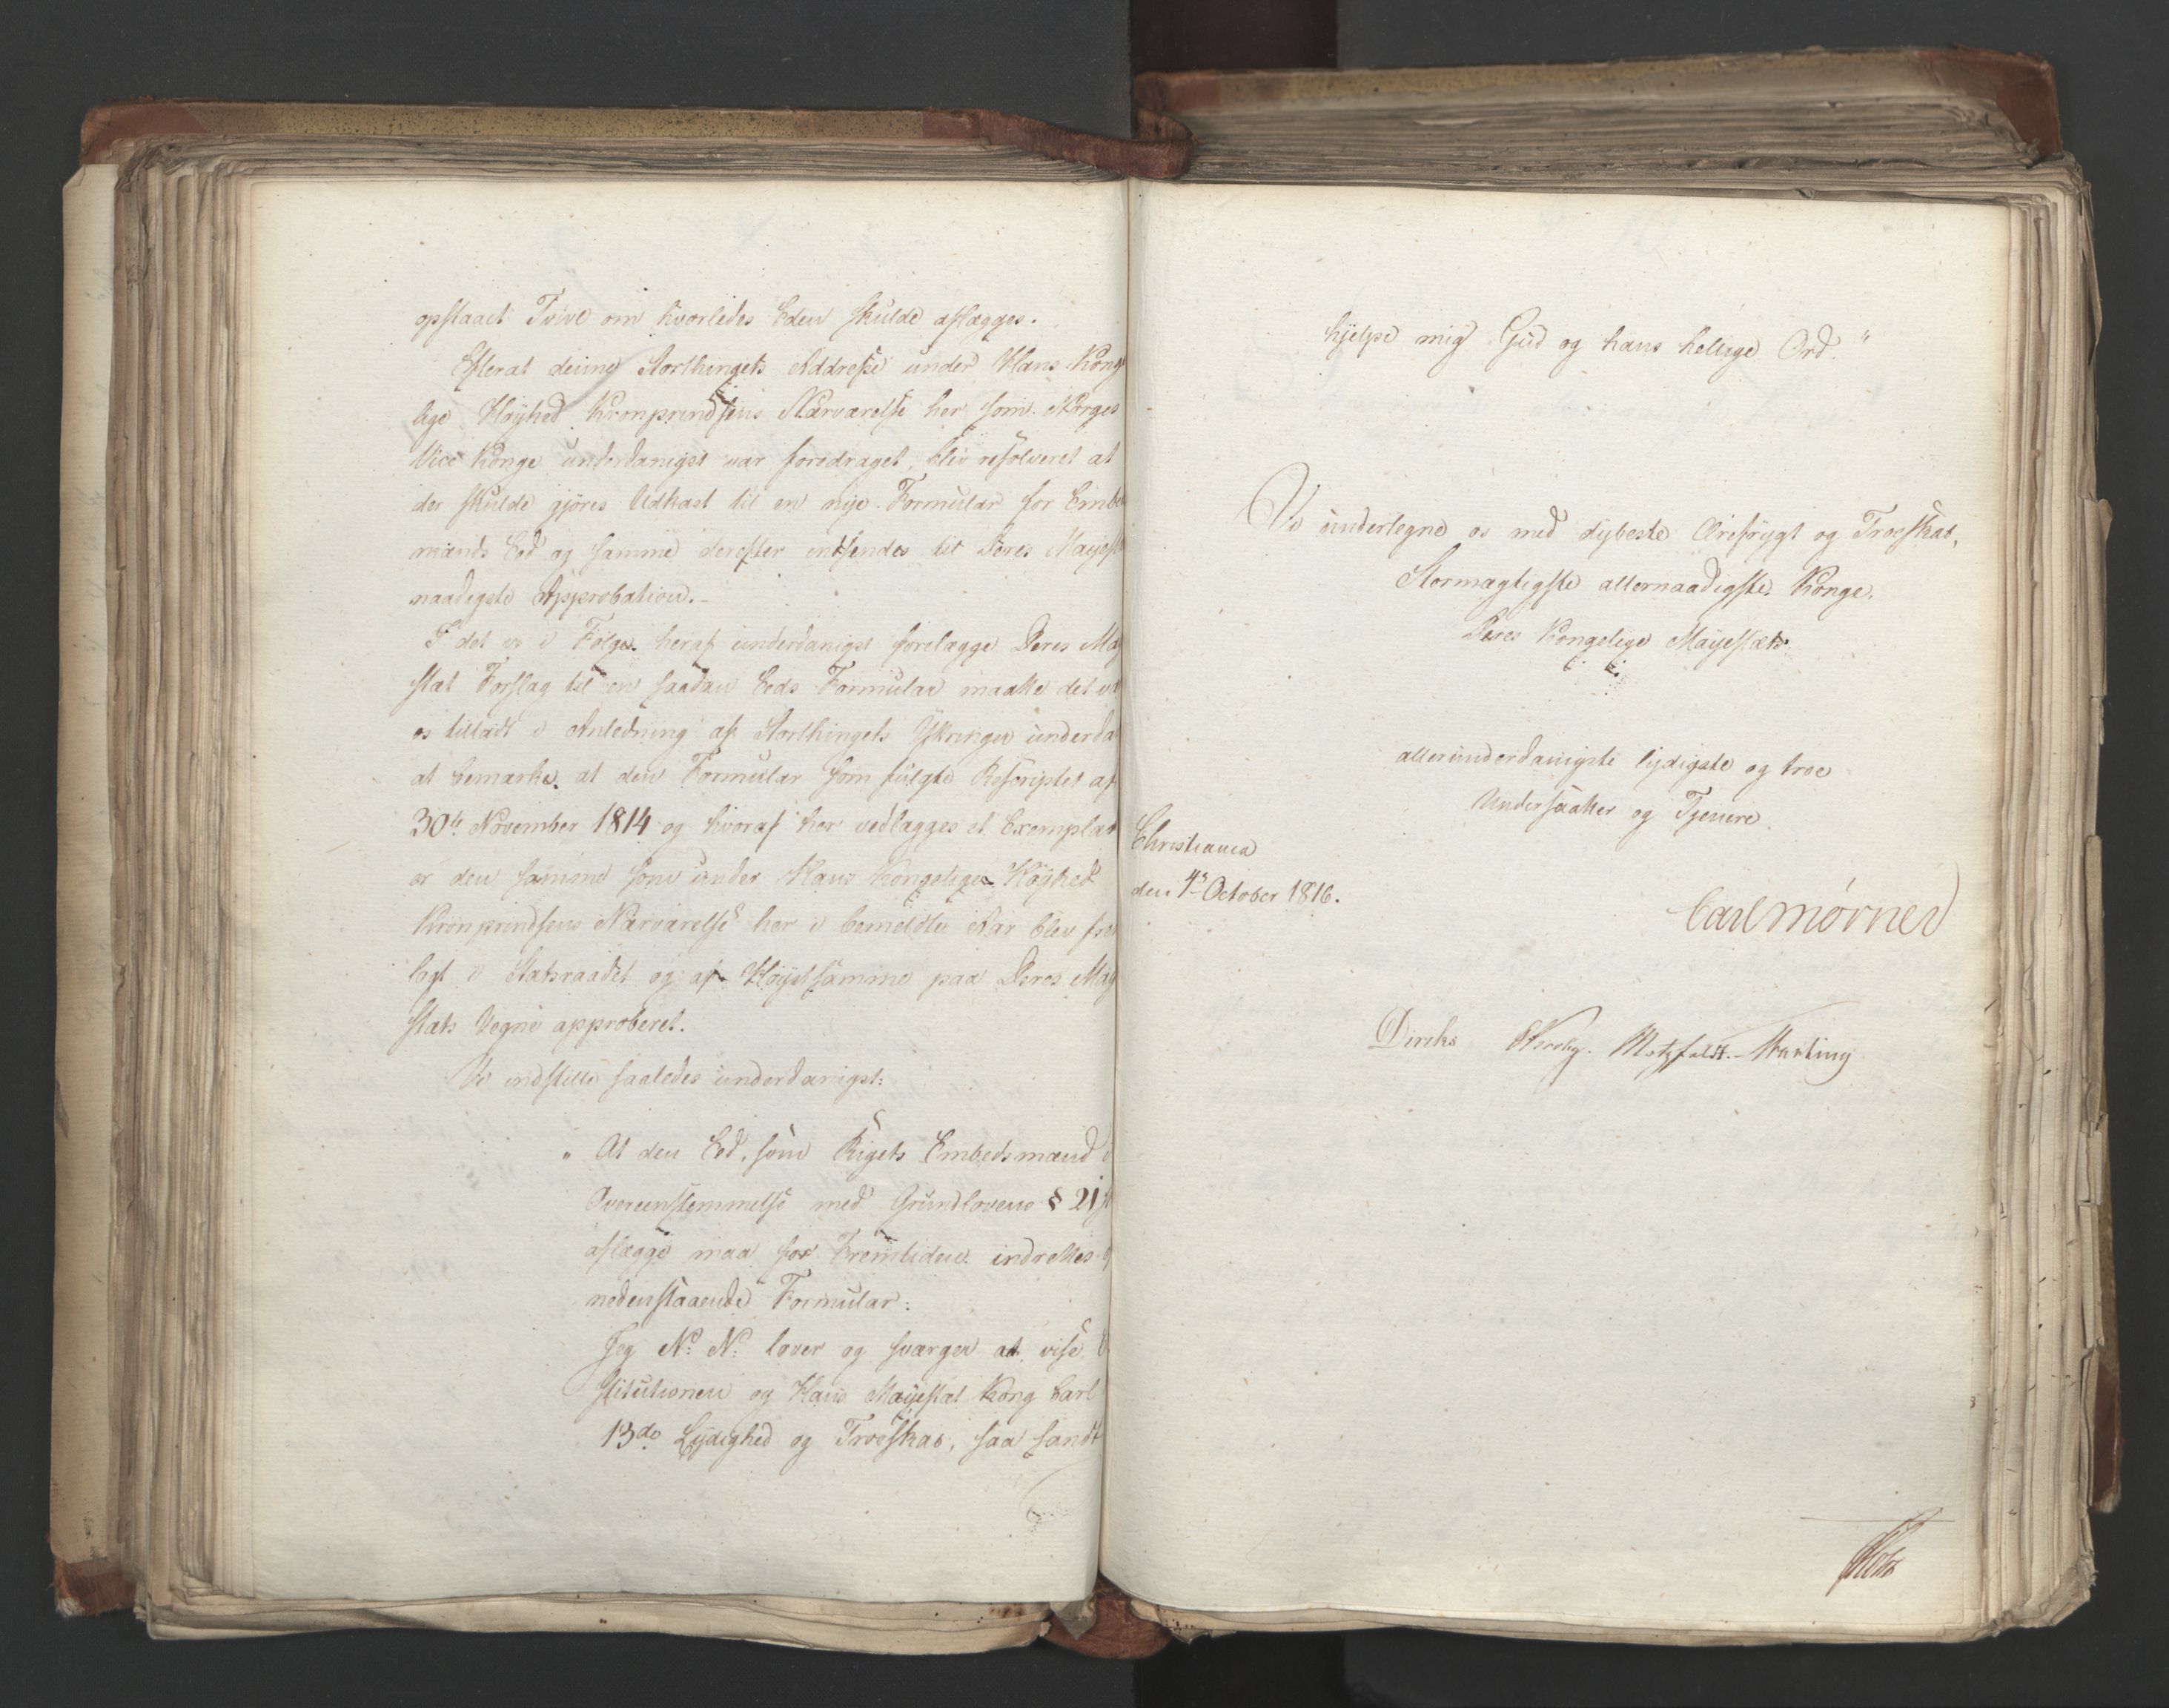 opstaaet Tvivl om hvorledes Eden skulde aflægges.
Efterat denne Storthingets Addresse under Hans Konge
lige Høyhed Kronprindsens Nærværelse her som Norges
Vice Konge underdanigst var foredraget, blev resolveret at
der skulde gjøres Udkast til en nye Formular for Embeds
mænds Eed og samme derefter indsendes til Deres Mayestæts
naadigste Approbation.
I det vi i Følge heraf underdanigst forelægge Deres May
stæt Forslag til en saadan Eeds Formular maatte det være
os tilladt i Anledning af Storthingets Yttringer underda
at bemærke, at den Formular som fulgte Rescriptet af
30te November 1814 og hvoraf her vedlægges et Exemplar
er den samme som under Hans Kongelige Høyhed
Kronprindsens Nærværelse her i bemeldte Aar blev fre
lagt i Statsraadet og af Høystsamme paa Deres May
stæts Vegne approberet.
Vi indstille saaledes underdanigst:
" At den Eed, som Rigets Embedsmænd i
Overeenstemmelse med Grundlovens § 21
aflægge maa for Fremtiden indrettes
nedenstaaende Formular:
Jeg N: N: lover og sværger at vise
stitutionen og Hans Mayestæt Kong Carl
13de Lydighed og Troeskab, saa sandt
hjelpe mig Gud og hans hellige Ord."
Vi undertegne os med dybeste Ærefrygt og Troeskab,
Stormægtigste allernaadigste Konge,
Deres Kongelige Mayestæts
allerunderdanigste lydigste og troe
Undersaatter og Tjenere.
Christiania
den 4de October 1816.
Carl Mörner
Diriks Krohg. Motzfeldt. Hartung